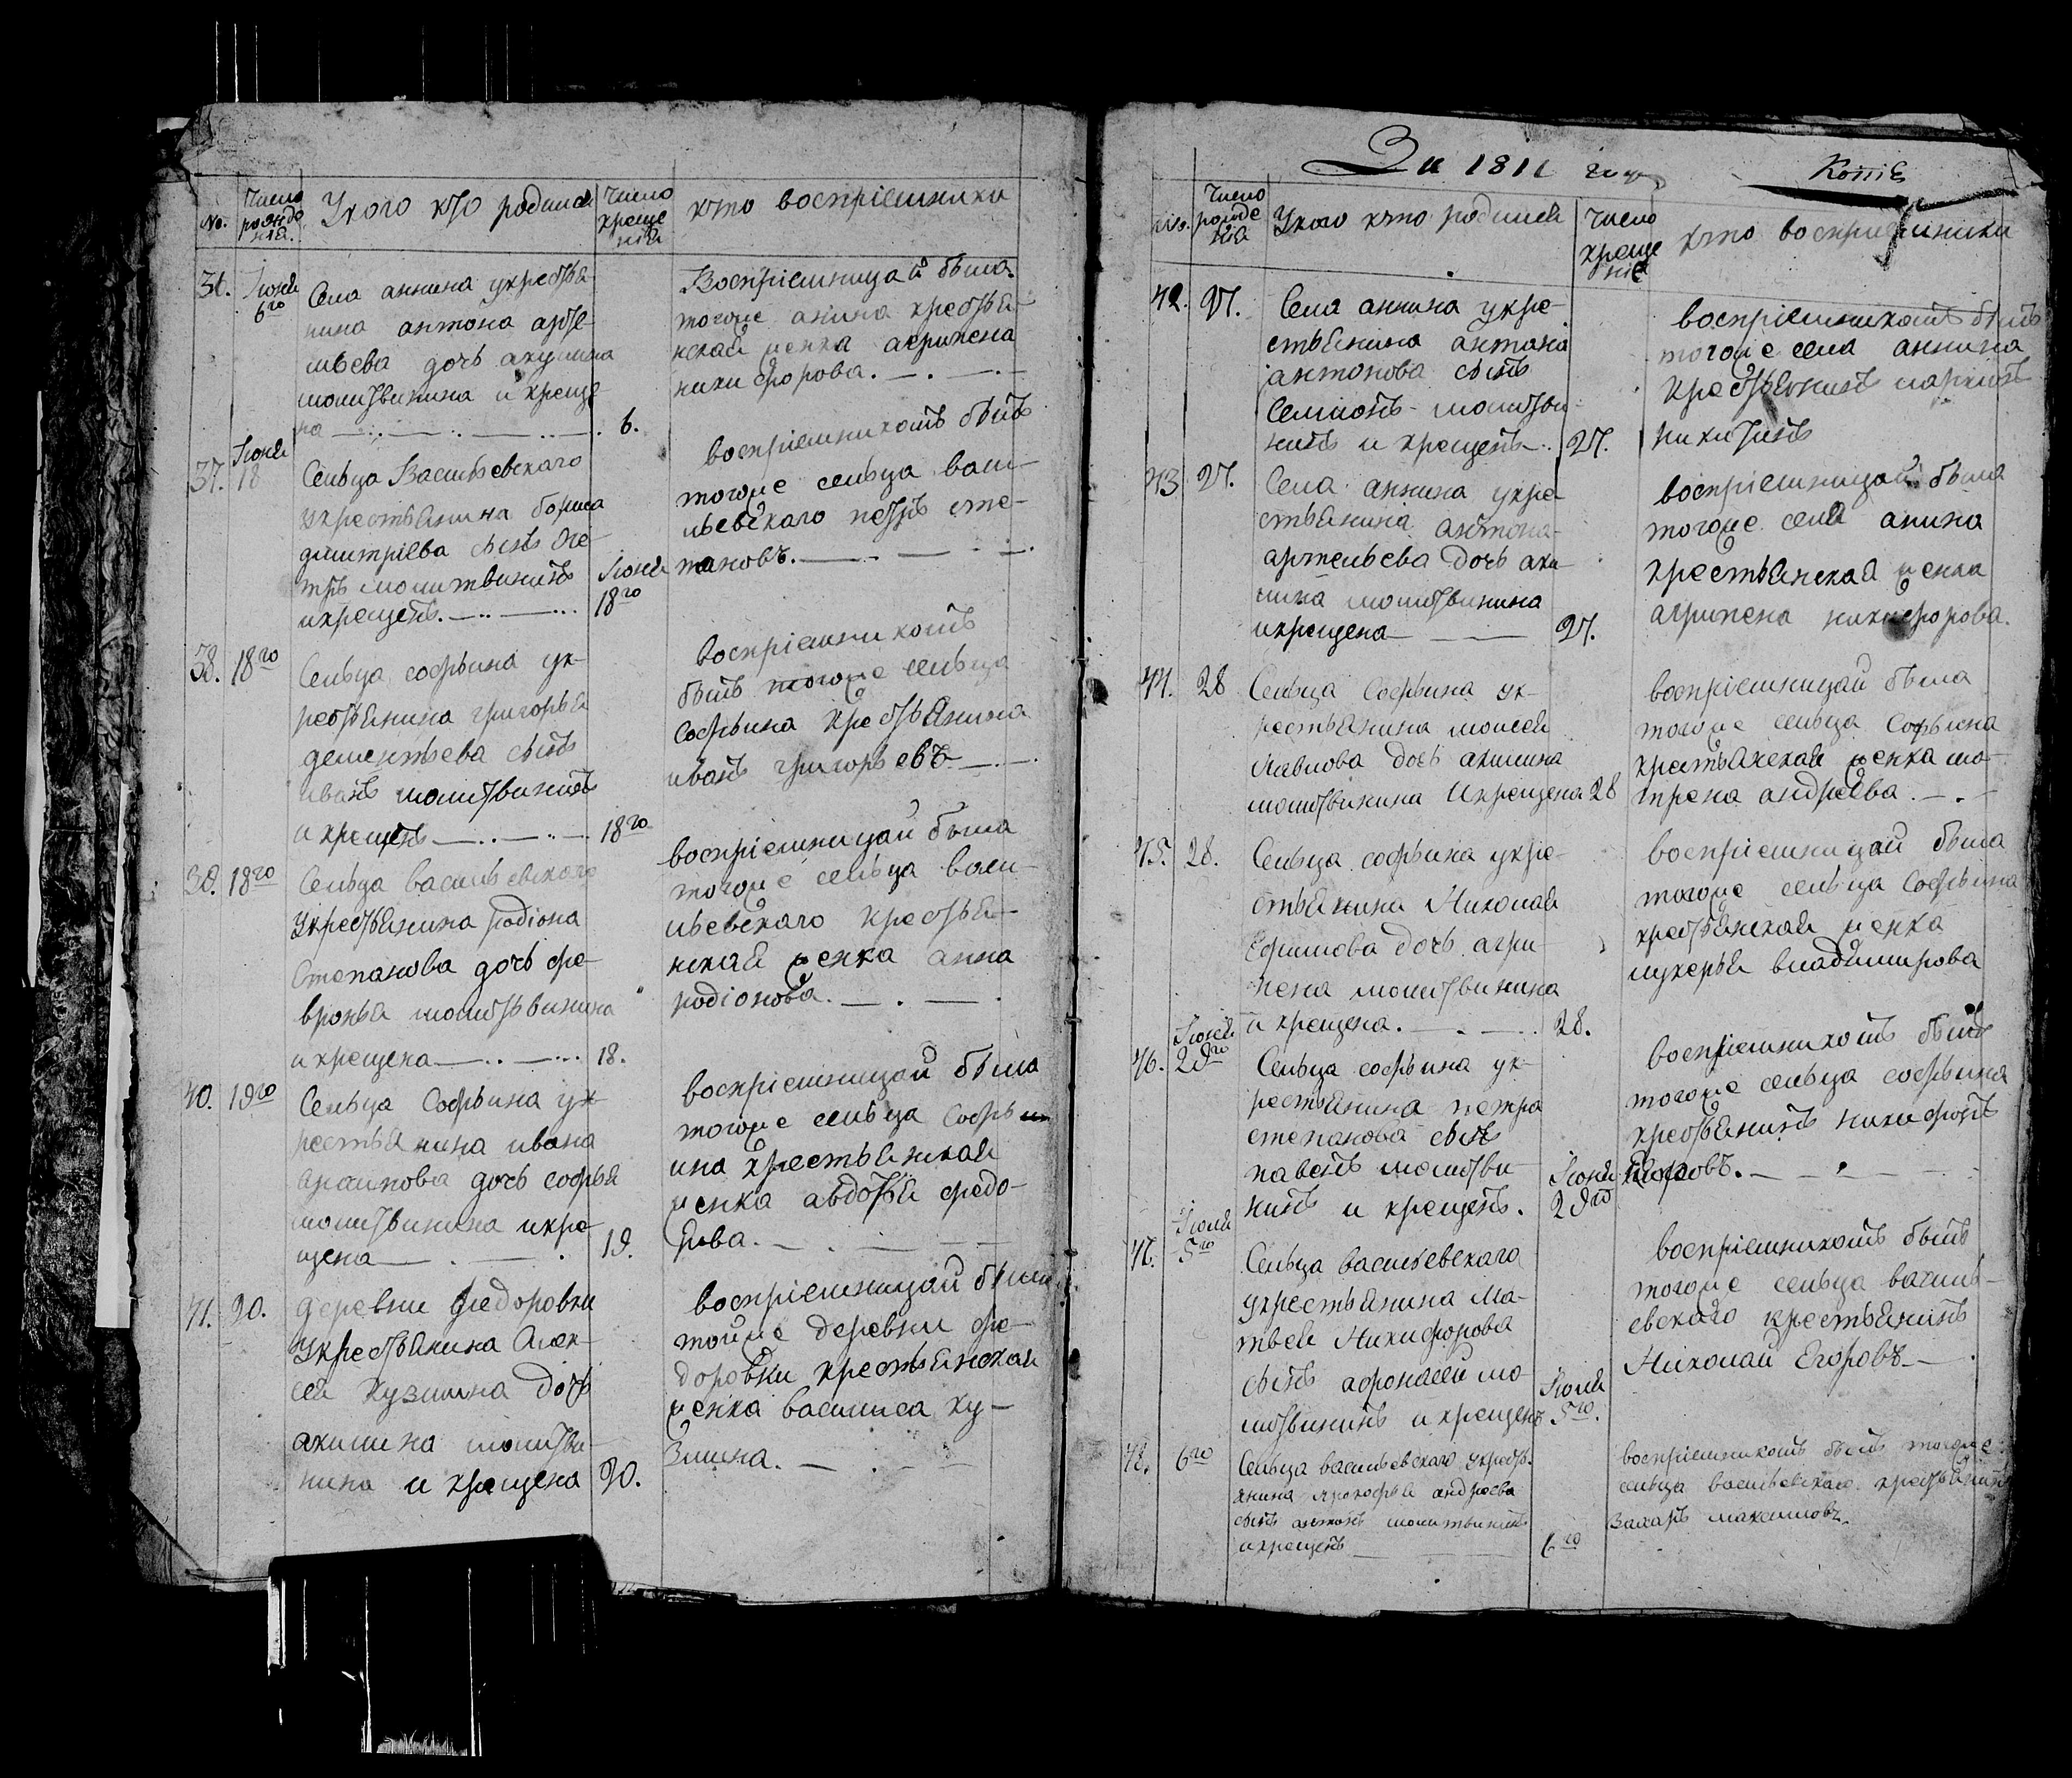 No.
Число рожде ния.
У кого кто родился
Число креще ния
кто восприемники
36.
Июня 6го
Села аннина укрестья
нина антона арте
мьева дочь акулина
молитвинина и креще
на
6.
Восприемницай была
тогоже анина крестья
нская женка агрипена
никифорова.
37.
Июня 18
Сельца Васильевскаго
укрестьянина бориса
дмитриева сынъ
молитвининъ
икрещенъ.
Июня 18го
восприемникомъ былъ
тогоже сельца васи
льевскаго петръ сте
пановъ.
38.
18го
Сельца софьина ук
рестьянина григорья
дементьева сынъ
иванъ молитвининъ
и крещенъ
18го
восприемникомъ
былъ тогоже сельца
софьина крестьянина
иванъ григорьевъ
39.
18го
Сельца васильевского
укрестьянина родиона
степанова дочь фе
вронья молитьвинина
и крещена
18.
восприемницай была
тогоже сельца васи
льевскаго крестья
нская женка анна
родионова.
40.
19го
Сельца Софьина ук
рестьянина ивана
архипова дочь софья
молитвинина икре
щена
19.
восприемницай была
тогоже сельца Софь
ина крестьянская
женка авдотья федо
това.
41.
20.
деревни Федоровки
Укрестьянина Алек
сея Кузмина дочь
акилина молитви
нина и крещена
20.
восприемницай была
тойже деревни фе
доровки крестьянская
женка василиса ку
змина.
За 1811 году
Копие
No.
Число рожде ния
У кого кто родился
Число креще ние
кто восприемники
42.
27.
Села аннина укре
стьянина антона
антонова сынъ
Семионъ молитви
нинъ и крещенъ
27.
восприемникомъ былъ
тогоже села аннина
крестьянинъ
никитинъ
43
27.
Села аннина укре
стьянина антона
артемьева дочь аки
лина молитвинина
икрещена
27.
восприемницай была
тогоже села анина
крестьянская женка
агрипена никифорова.
44.
28
Сельца Софьина ук
рестьянина моисея
Павлова дочь акилина
молитвинина Икрещена
28
восприемницай была
тогоже сельца Софьина
крестьянская женка ма
трена андреева.
45.
28.
Сельца софьина укре
стьянина Николая
Ефимова дочь агри
пена молитвинина
и крещена.
28.
восприемницай была
тогоже сельца Софьина
крестьянская женка
лукерья владимирова
46.
Июня 29го
Сельца софьина ук
рестьянина петра
степанова сынъ
павелъ молитви
нинъ и крещенъ.
Июня 29го
восприемникомъ былъ
тогоже сельца софьина
крестьянинъ никифоръ
47.
Июля 5го
Сельца васильевскаго
укрестьянина Ма
твея Никифорова
сынъ афонасей мо
литвининъ и крещенъ
Июля 5го.
восприемникомъ былъ
тогоже сельца василь
евскаго крестьянинъ
Николай Егоровъ
48.
6го
Сельца васильевскаго укресть
янина прокофья андреева
сынъ антонъ молитвининъ
икрещенъ
6го
восприемникомъ былъ тогоже
сельца васильевскаго крестьянинъ
Захаръ максимовъ.